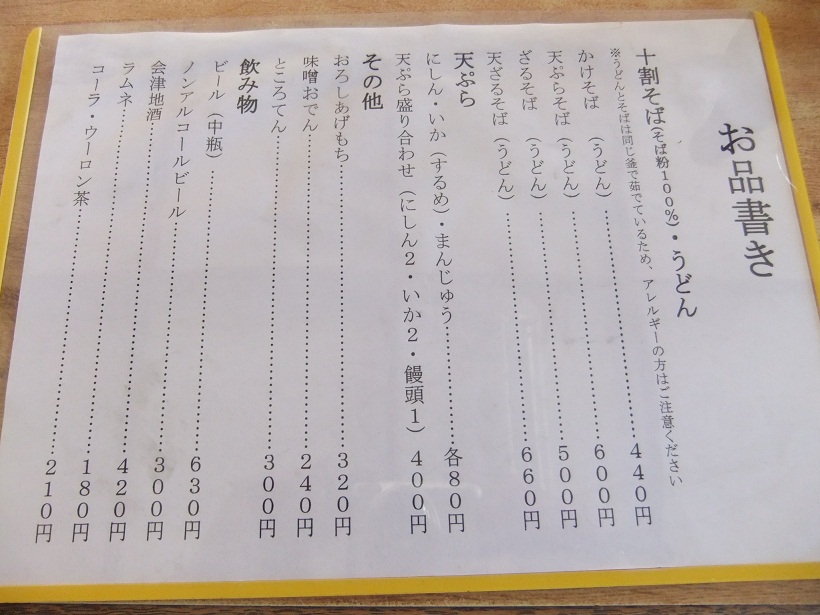 お品書き
十割そば(そば粉100%)・うどん
※うどんとそばは同じ釜で茹でているため、アレルギーの方はご注意ください
かけそば (うどん)……………………440円
天ぷらそば (うどん)……………………600円
ざるそば (うどん)……………………500円
天ざるそば (うどん)……………………660円
天ぷら
にしん・いか(するめ)・まんじゅう……………各80円
天ぷら盛り合わせ (にしん2・いか2・饅頭1) 400円
その他
おろしあげもち……………………320円
味噌おでん……………………240円
ところてん……………………300円
飲み物
ビール (中瓶)……………………630円
ノンアルコールビール……………………300円
会津地酒……………………420円
ラムネ……………………180円
コーラ・ウーロン茶……………………210円